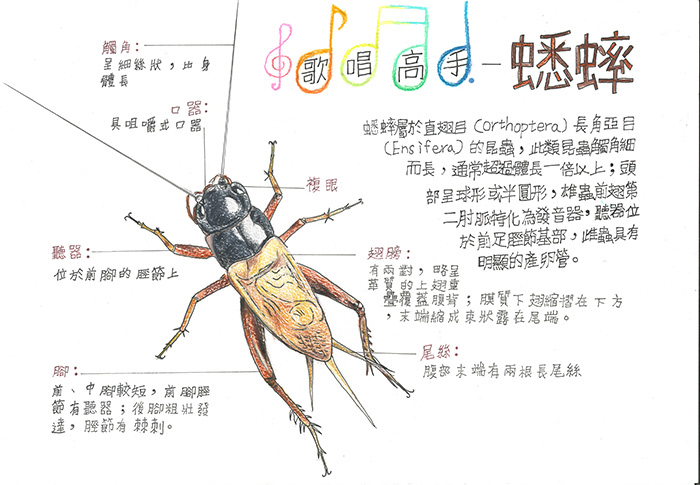 歌唱高手—蟋蟀
觸角:
呈細絲狀,比身
體長
口器:
具咀嚼式口器
複眼
蟋蟀屬於直翅目(Orthoptera)長角亞目
(Ensifera)的昆蟲,此類昆蟲觸角細
而長,通常超過體長一倍以上;頭
部呈球形或半圓形,雄蟲前翅第
二肘脈特化為發音器,聽器位
於前足脛節基部,雌蟲具有
明顯的產卵管。
聽器:
位於前腳的脛節上
翅膀:
有兩對,略呈
革質的上翅重
疊覆蓋腹背;膜質下翅縮摺在下方
,末端縮成束狀露在尾端。
尾絲:
腹部末端有兩根長尾絲
腳:
前、中腳較短,前腳脛
節有聽器;後腳粗壯發
達,脛節有棘刺。